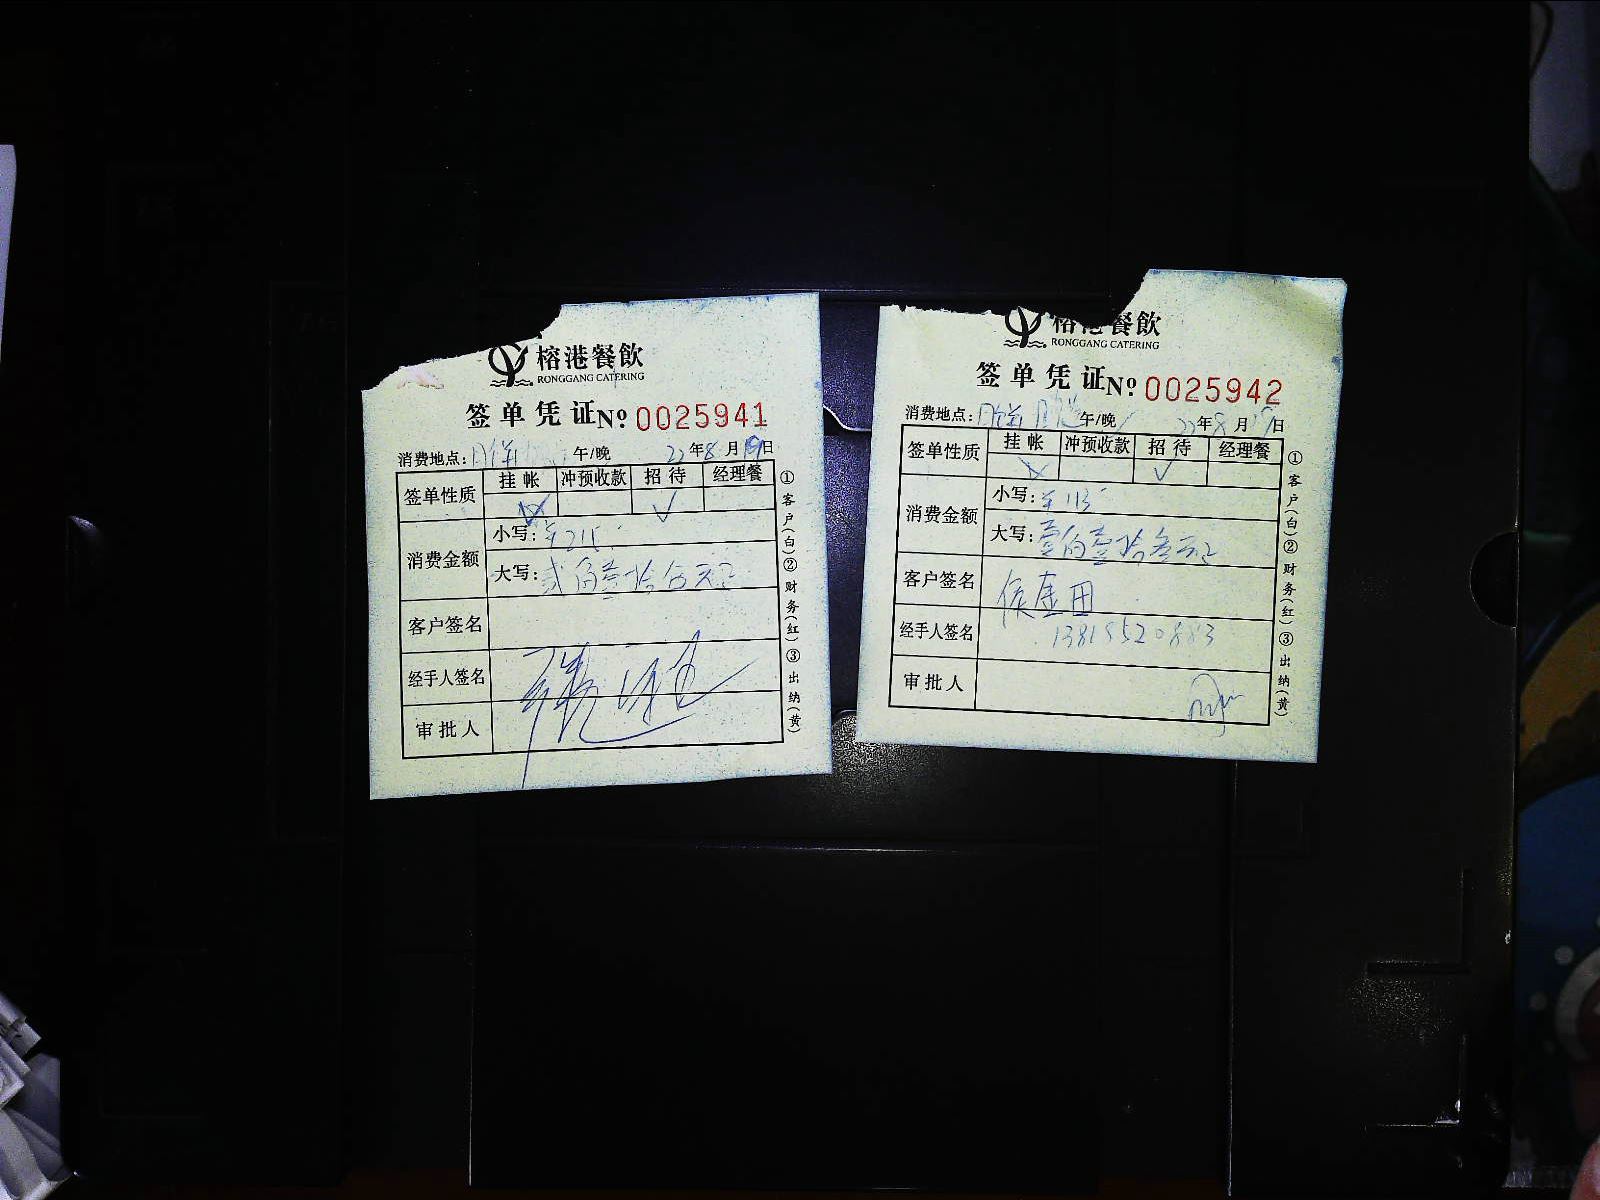 榕港餐飲
RONGGANG CATERING
签单凭证 Nº 0025941
消费地点: 月饼 午/晚 22年8月19日
签单性质 挂帐 冲预收款 招待 经理餐
√
消费金额 小写: ¥215
大写: 贰佰壹拾伍元正
客户签名
经手人签名
审批人
①客户(白)②财务(红)③出纳(黄)
榕港餐飲
RONGGANG CATERING
签单凭证 Nº 0025942
消费地点: 月饼 午/晚 22年8月19日
签单性质 挂帐 冲预收款 招待 经理餐
√
消费金额 小写: ¥113
大写: 壹佰壹拾叁元正
客户签名
经手人签名
审批人
①客户(白)②财务(红)③出纳(黄)